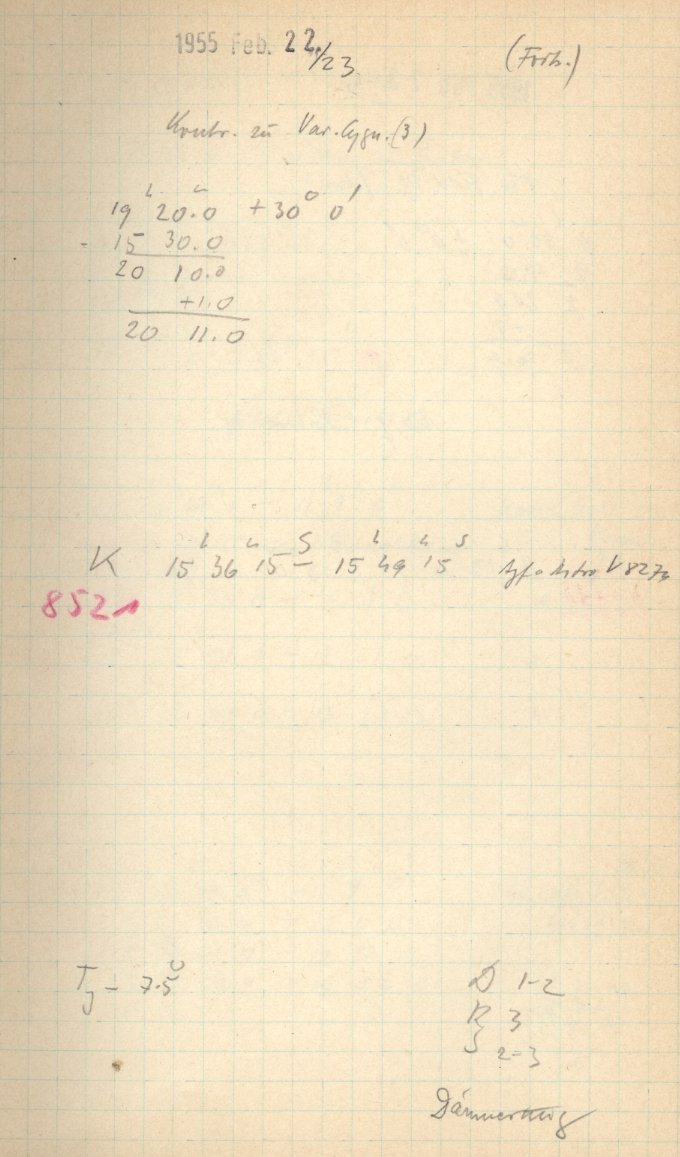 1955 Feb. 22./23 (Forts.)
Kontr. zu Var. Cygn. (3)
19h 20.0 + 30° 0'
- 15 30.0
20 10.0
+1.0
20 11.0
K 15h 36m 15s – 15h 49m 15s Agfa Astro V 8273
8521
T - 7.5°
D 1-2
R 3
S 2-3
Dämmerung